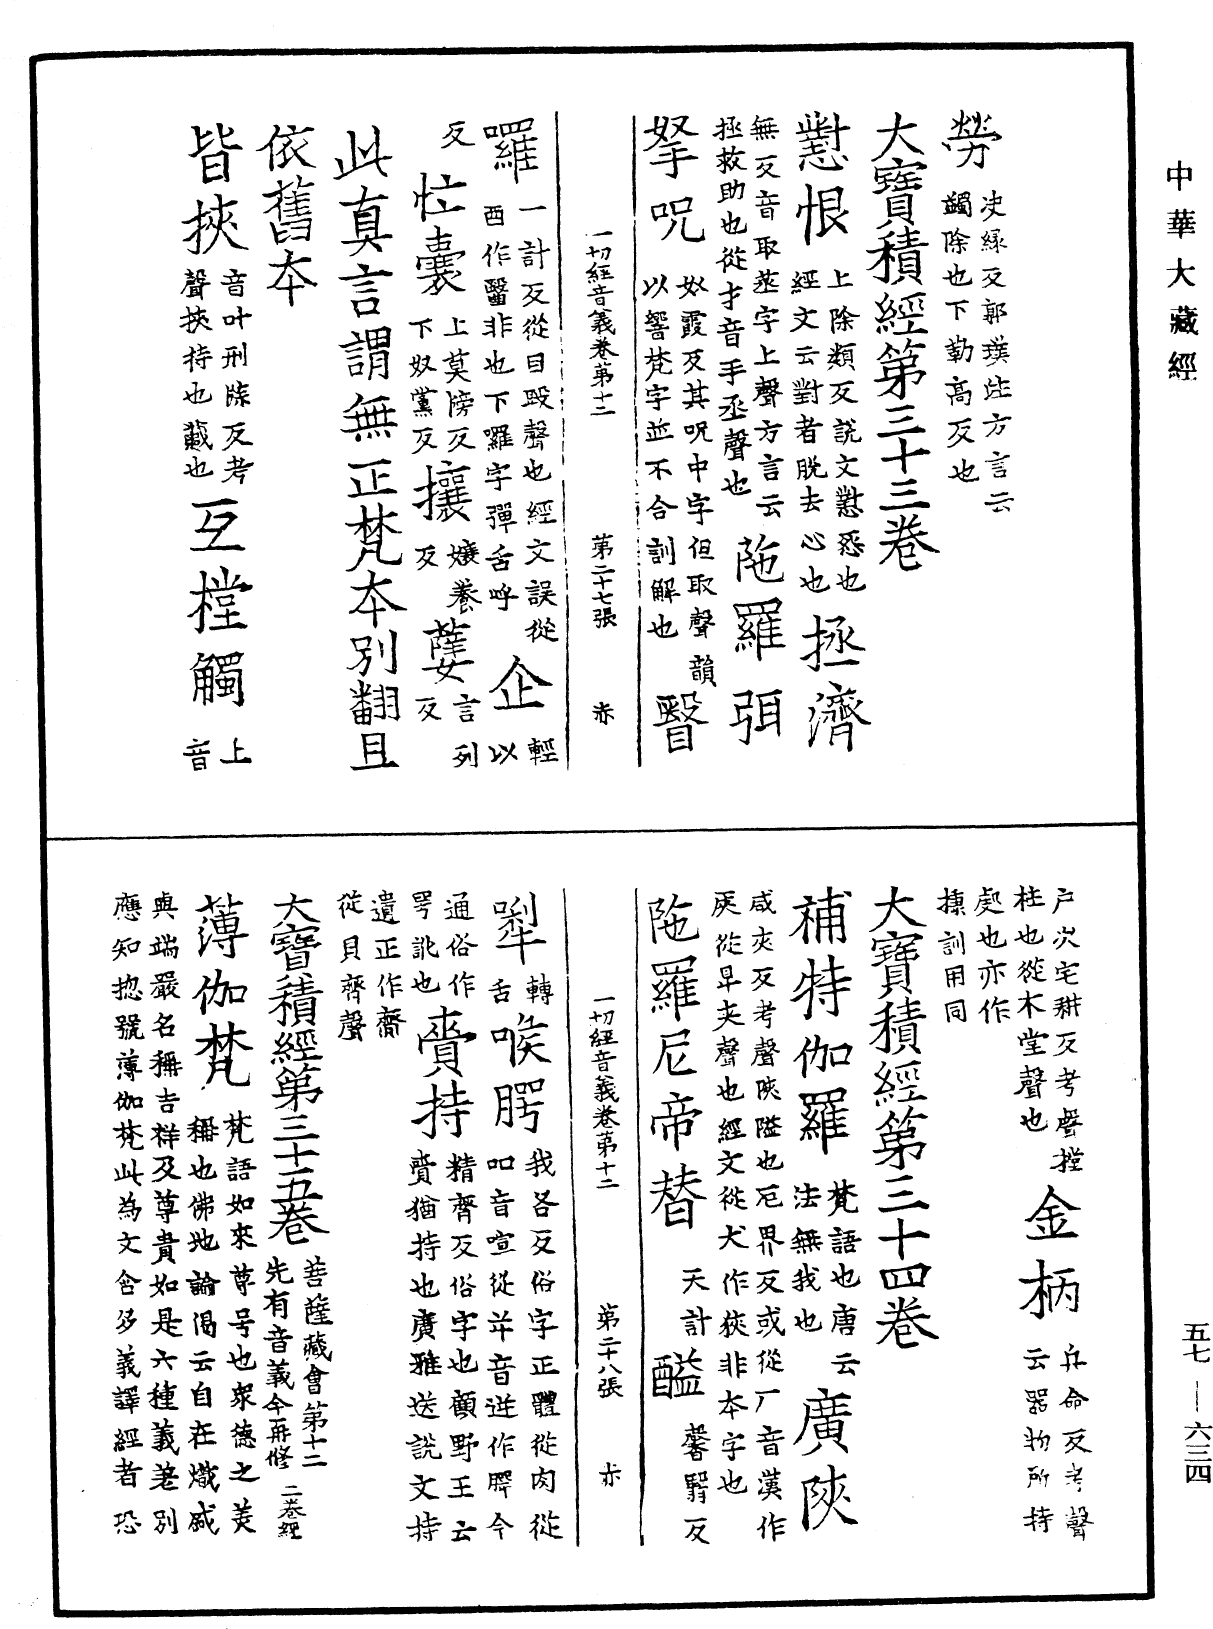 中華大藏經
勞
決緣反郭璞注方言云
蠲除也下勒高反也
大寶積經第三十三卷
懟恨
上除類反說文懟怨也
經文云對者脫去心也
拯濟
無反音取蒸字上聲方言云
拯救助也從才音手丞聲也
陁羅弭
拏呪
奴霞反其呪中字但取聲韻
以響梵字並不合訓解也
瞖
一切經音義卷第十二 第二十七張 赤
囉
一計反從目殹聲也經文誤從
酉作醫非也下囉字彈舌呼
企
輕以
反
恾囊
上莫傍反
下奴黨反
攘
孃養
反
薩
言列
反
此真言謂無正梵本別翻且
依舊本
皆挾
音叶刑牒反考
聲挾持也藏也
互樘觸
上音
戶次宅耕反考聲樘
柱也從木堂聲也
金柄
兵命反考聲
云器物所持
處也亦作
棅訓用同
大寶積經第三十四卷
補特伽羅
梵語也唐云
法無我也
廣陝
咸夾反考聲陝隘也戹界反或從厂音漢作
厌從阜夾聲也經文從犬作狹非本字也
陁羅尼帝替
天計
醯
馨翳反
一切經音義卷第十二 第二十八張 赤
㗚
轉舌
喉腭
我各反俗字正體從肉從
吅音喧從屰音逆作㖾今
通俗作
咢訛也
賷持
精齊反俗字也顧野王云
賷猶持也廣雅送說文持
遺正作齎
從貝齊聲
大寶積經第三十五卷
菩薩藏會第十二
先有音義今再修
二卷經
薄伽梵
梵語如來尊号也衆德之美
稱也佛地論偈云自在熾盛
與端嚴名稱吉祥及尊貴如是六種義差別
應知揔號薄伽梵此為文含多義譯經者恐
五七—六三四